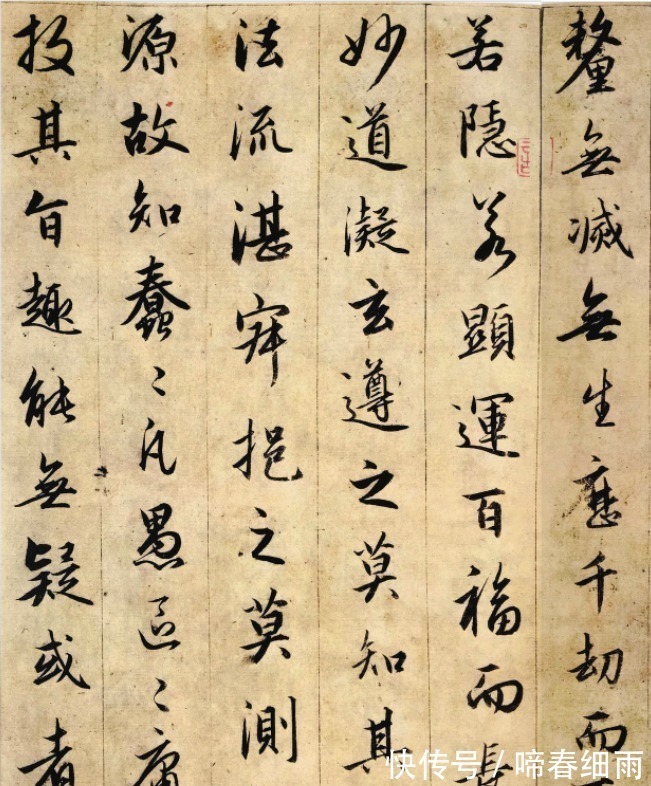 釐無滅無生歷千劫而
若隱若顯運百福而長
妙道凝玄遵之莫知其
法流湛寂挹之莫測
源故知蠢〻凡愚區〻庸
投其旨趣能無疑或者
快传号 / 啼春细雨